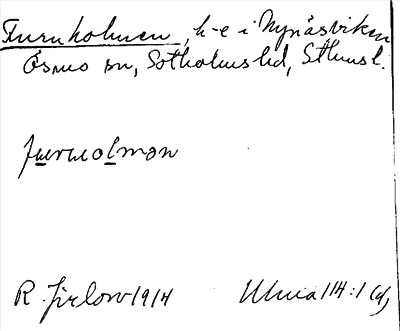 Furuholmen, h-e i Nynäsviken
Ösmo sn, Sotholms hd, Sthms l.
furuolmən
R. Jirlow 1914
Ulma 114:1 (d)